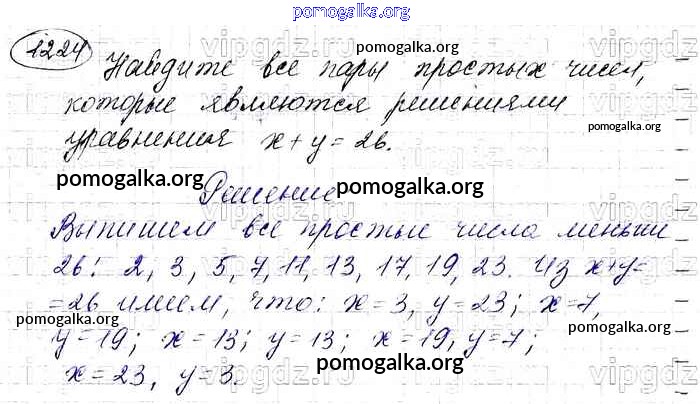 pomogalka.org
1224 Найдите все пары простых чисел,
которые являются решениями
уравнения x + y = 26.
Решение
Выпишем все простые числа меньши
26: 2, 3, 5, 7, 11, 13, 17, 19, 23. Из x+y=
=26 имеем, что: x=3, y=23; x=7,
y=19; x=13; y=13; x=19, y=7;
x=23, y=3.
pomogalka.org
pomogalka.org
pomogalka.org
pomogalka.org
pomogalka.org
pomogalka.org
pomogalka.org
vipgdz.ru
vipgdz.ru
vipgdz.ru
vipgdz.ru